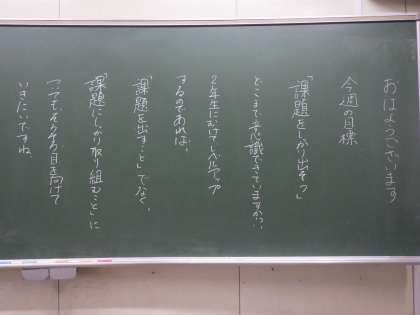 おはようございます
今週の目標
「課題をしっかり出そう」
どこまで意識できていますか?
2年生にむけてレベルアップ
するのであれば、
「課題を出すこと」でなく、
「課題にしっかり取り組むこと」に
そろそろ目を向けて
いきたいですね。